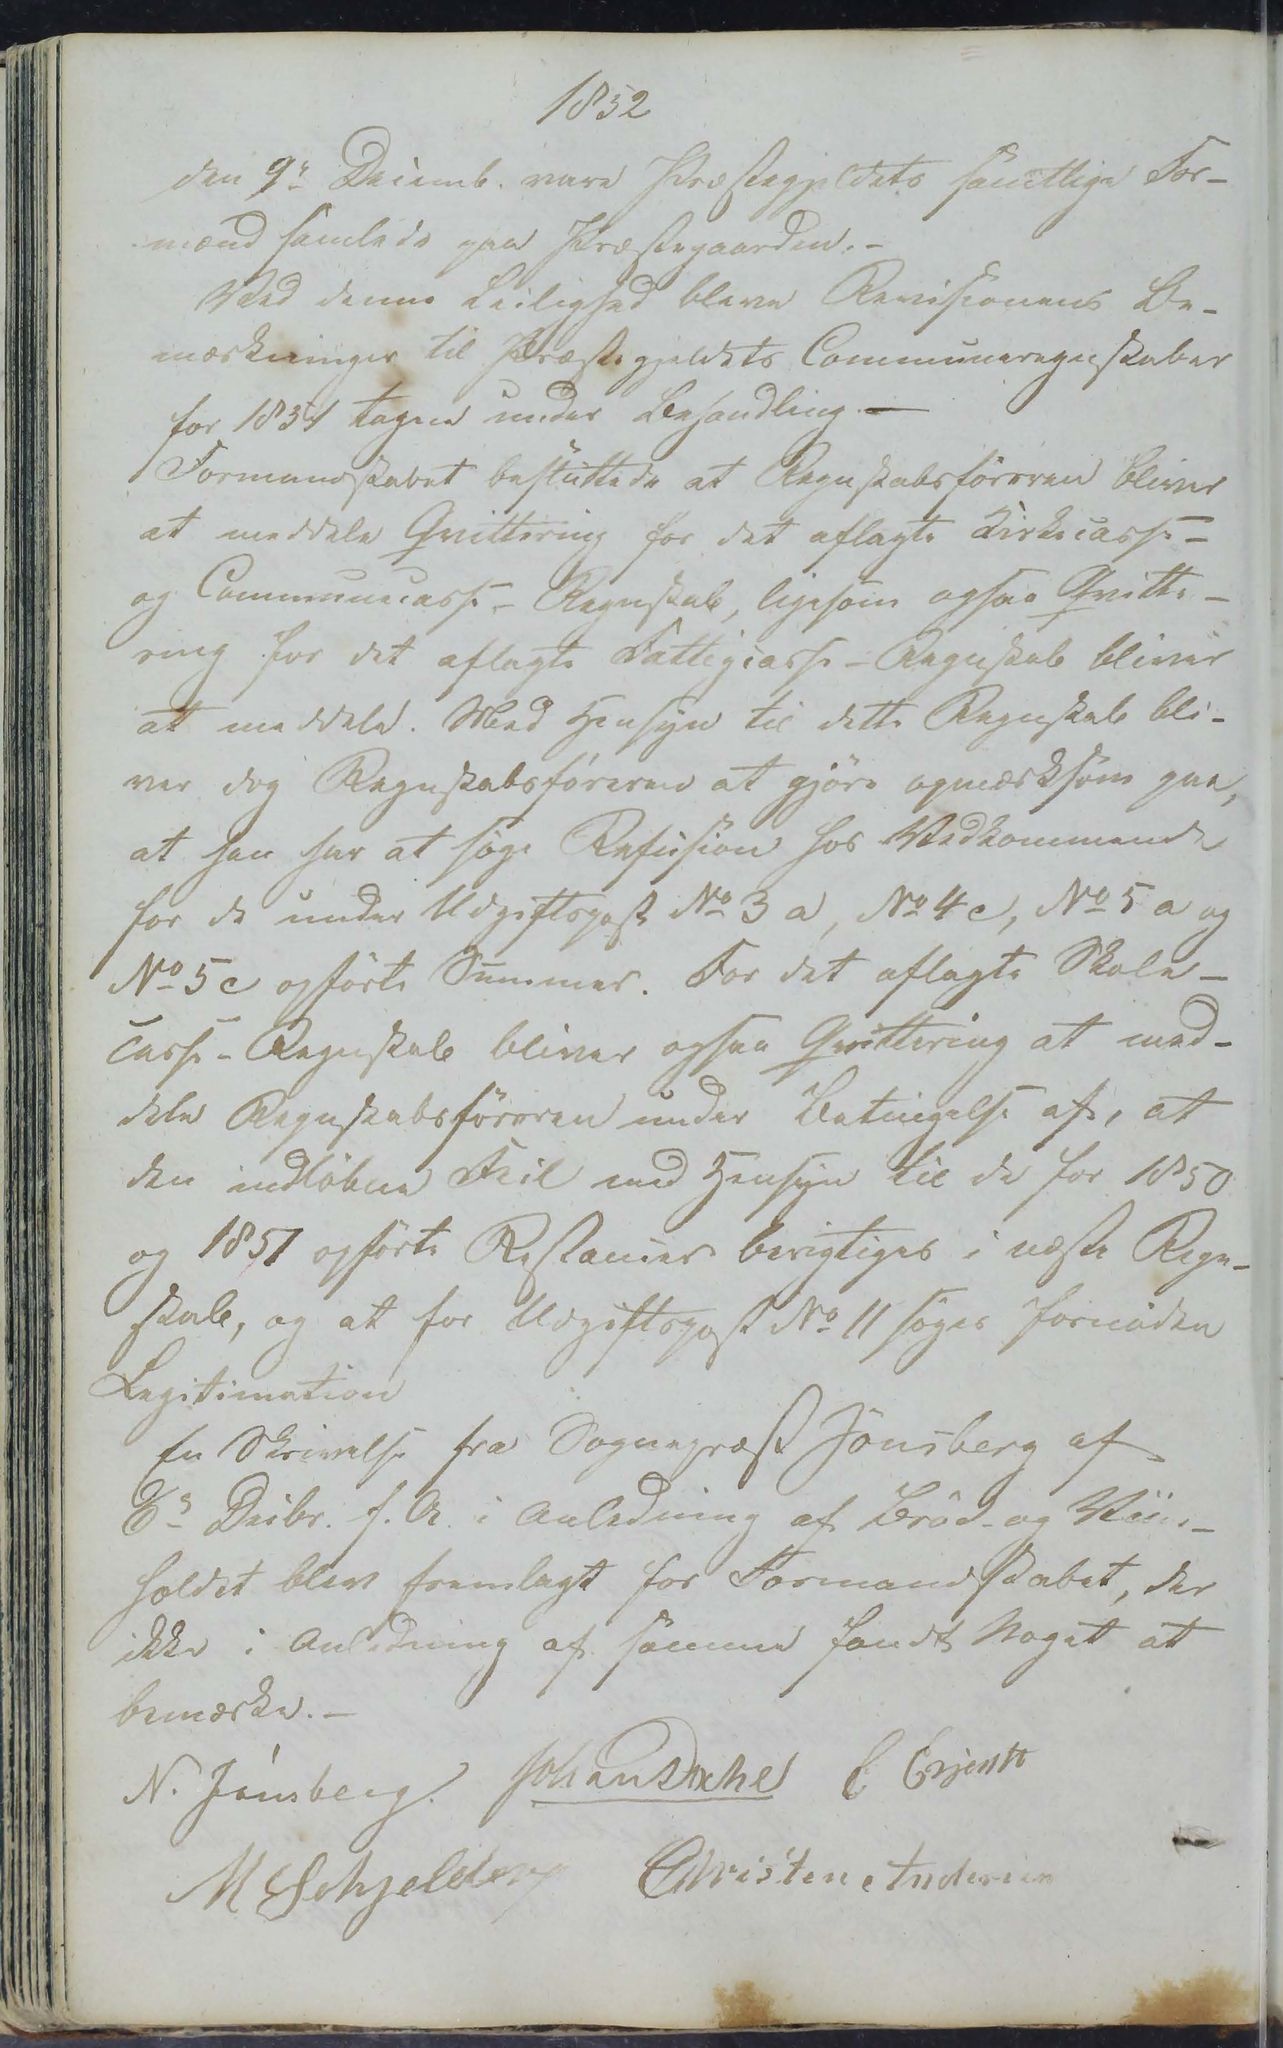 1852
den 9de Decemb. vare Præstegjeldets samtlige For-
mænd samlede paa Præstegaarden. -
Ved denne Leilighed bleve Revisionens Be-
mærkninger til Præstegjeldets Communeregnskaber
for 1851 tagne under Behandling. -
Formandskabet besluttede at Regnskabsföreren bliver
at meddele Qvittering for det aflagte Kirkecasse-
og Communecasse-Regnskab, ligesom ogsaa Qvitte-
ring for det aflagte Fattigcasse-Regnskab bliver
at meddele. Med Hensyn til dette Regnskab bli-
ver dog Regnskabsföreren at gjöre opmærksom paa,
at han har at söge Refusion hos Vedkommende
for de under Udgiftspost No 3 a, No 4 c, No 5 a og
No 5 c opförte Summer. For det aflagte Skole-
casse-Regnskab bliver ogsaa Qvittering at med-
dele Regnskabsföreren under Betingelse af, at
den indlöbne Feil med Hensyn til de for 1850
og 1851 opförte Restancer berigtiges i næste Regn-
skab, og at for Udgiftspost No 11 söges fornöden
Legitimation
En Skrivelse fra Sognepræst Jönsberg af
6te Decbr. f. A. i Anledning af Bröd- og Viin-
holdet blev fremlagt for Formandskabet, der
ikke i Anledning af samme fandt Noget at
bemærke. -
N. Jönsberg. Johan Dæhe C Gjens
M Schjelderup Christen Andersen